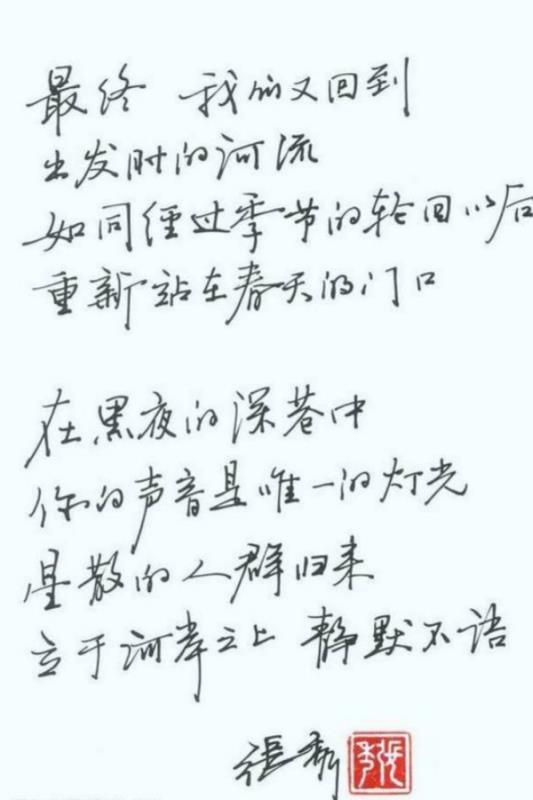 最终 我们又回到
出发时的河流
如同经过季节的轮回以后
重新站在春天的门口
在黑夜的深巷中
你的声音是唯一的灯光
星散的人群归来
立于河岸之上 静默不语
张秀